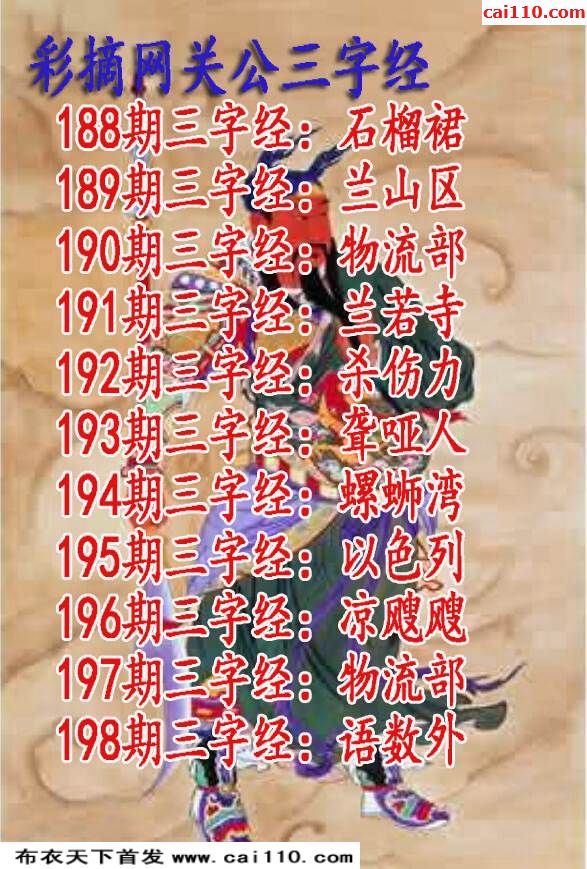 cai110.com
彩摘网关公三字经
188期三字经：石榴裙
189期三字经：兰山区
190期三字经：物流部
191期三字经：兰若寺
192期三字经：杀伤力
193期三字经：聋哑人
194期三字经：螺蛳湾
195期三字经：以色列
196期三字经：凉飕飕
197期三字经：物流部
198期三字经：语数外
布衣天下首发 www.cai110.com